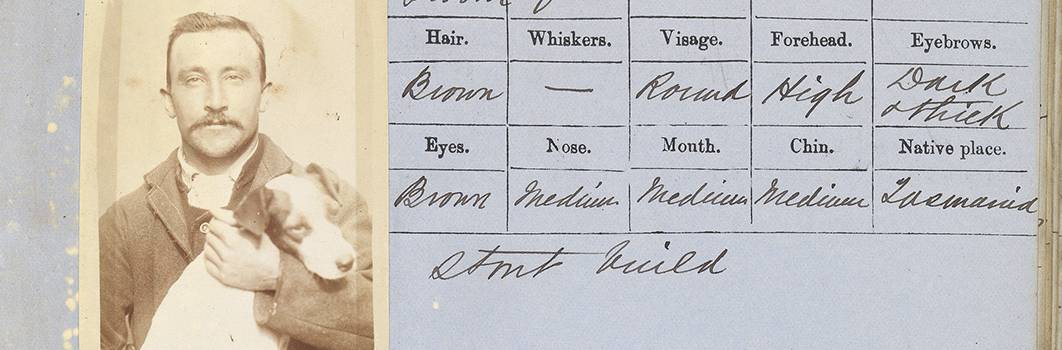 Hair. Whiskers. Visage. Forehead. Eyebrows.
Brown — Round High Dark
& thick
Eyes. Nose. Mouth. Chin. Native place.
Brown Medium Medium Medium Tasmania
Stout build